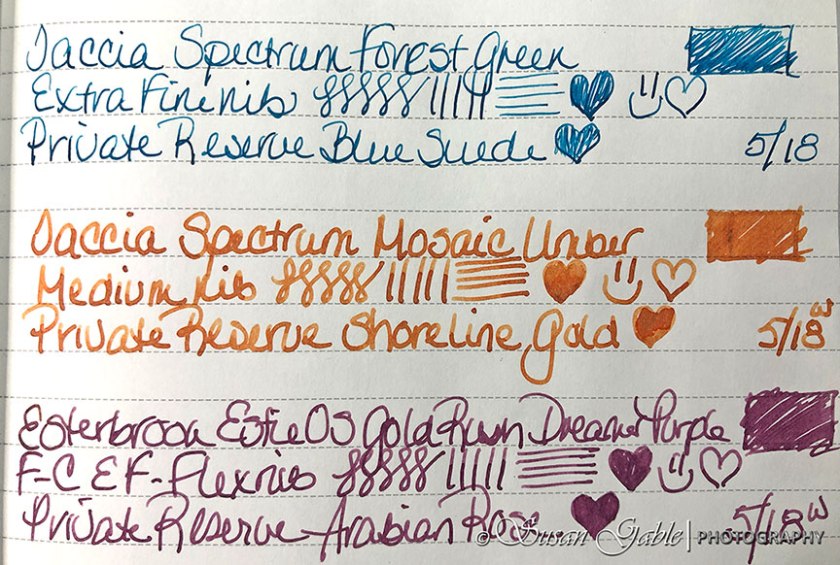 Taccia Spectrum Forest Green
Extra Fine nib
Private Reserve Blue Suede 5/18
Taccia Spectrum Mosaic Umber
Medium Nib
Private Reserve Shoreline Gold 5/18 w
Esterbrook Estie OS Gold Rush Dreamer Purple
F-C EF-Flex nib
Private Reserve Arabian Rose 5/18 w
© Susan Gable | PHOTOGRAPHY